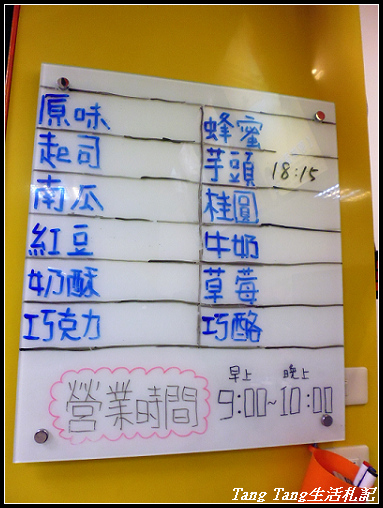 原味
起司
南瓜
紅豆
奶酥
巧克力
蜂蜜
芋頭 18:15
桂圓
牛奶
草莓
巧酪
營業時間
早上 晚上
9:00~10:00
Tang Tang生活札記